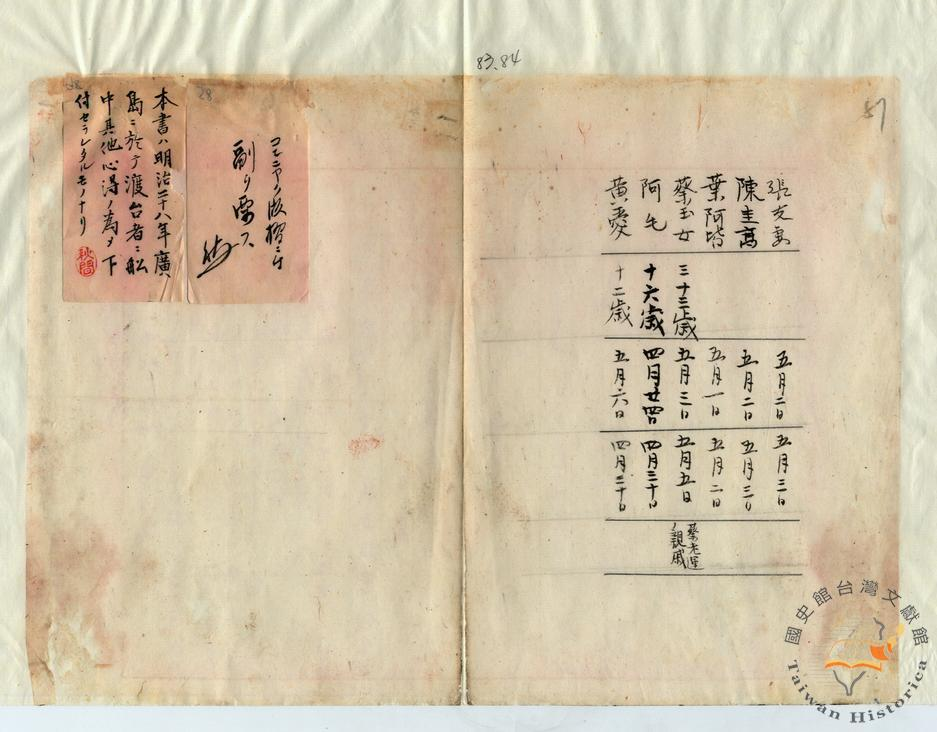 83.84
張老妻 五月二日 五月三日
陳圭高 五月二日 五月三日
葉阿皆 五月一日 五月二日
蔡玉女 三十三歳 五月三日 五月五日 蔡老運親戚
阿 十六歳 四月廿四日 四月三十日
黃愛 十二歳 五月六日 四月三十日
28
コンニヤク版摺ニ付
刷リ
本書ハ明治二十八年廣
島ニ於テ渡台者ニ船
中其他心得ノ為メ下
付セラレタルモノナリ
國史館台灣文獻館
Taiwan Historica